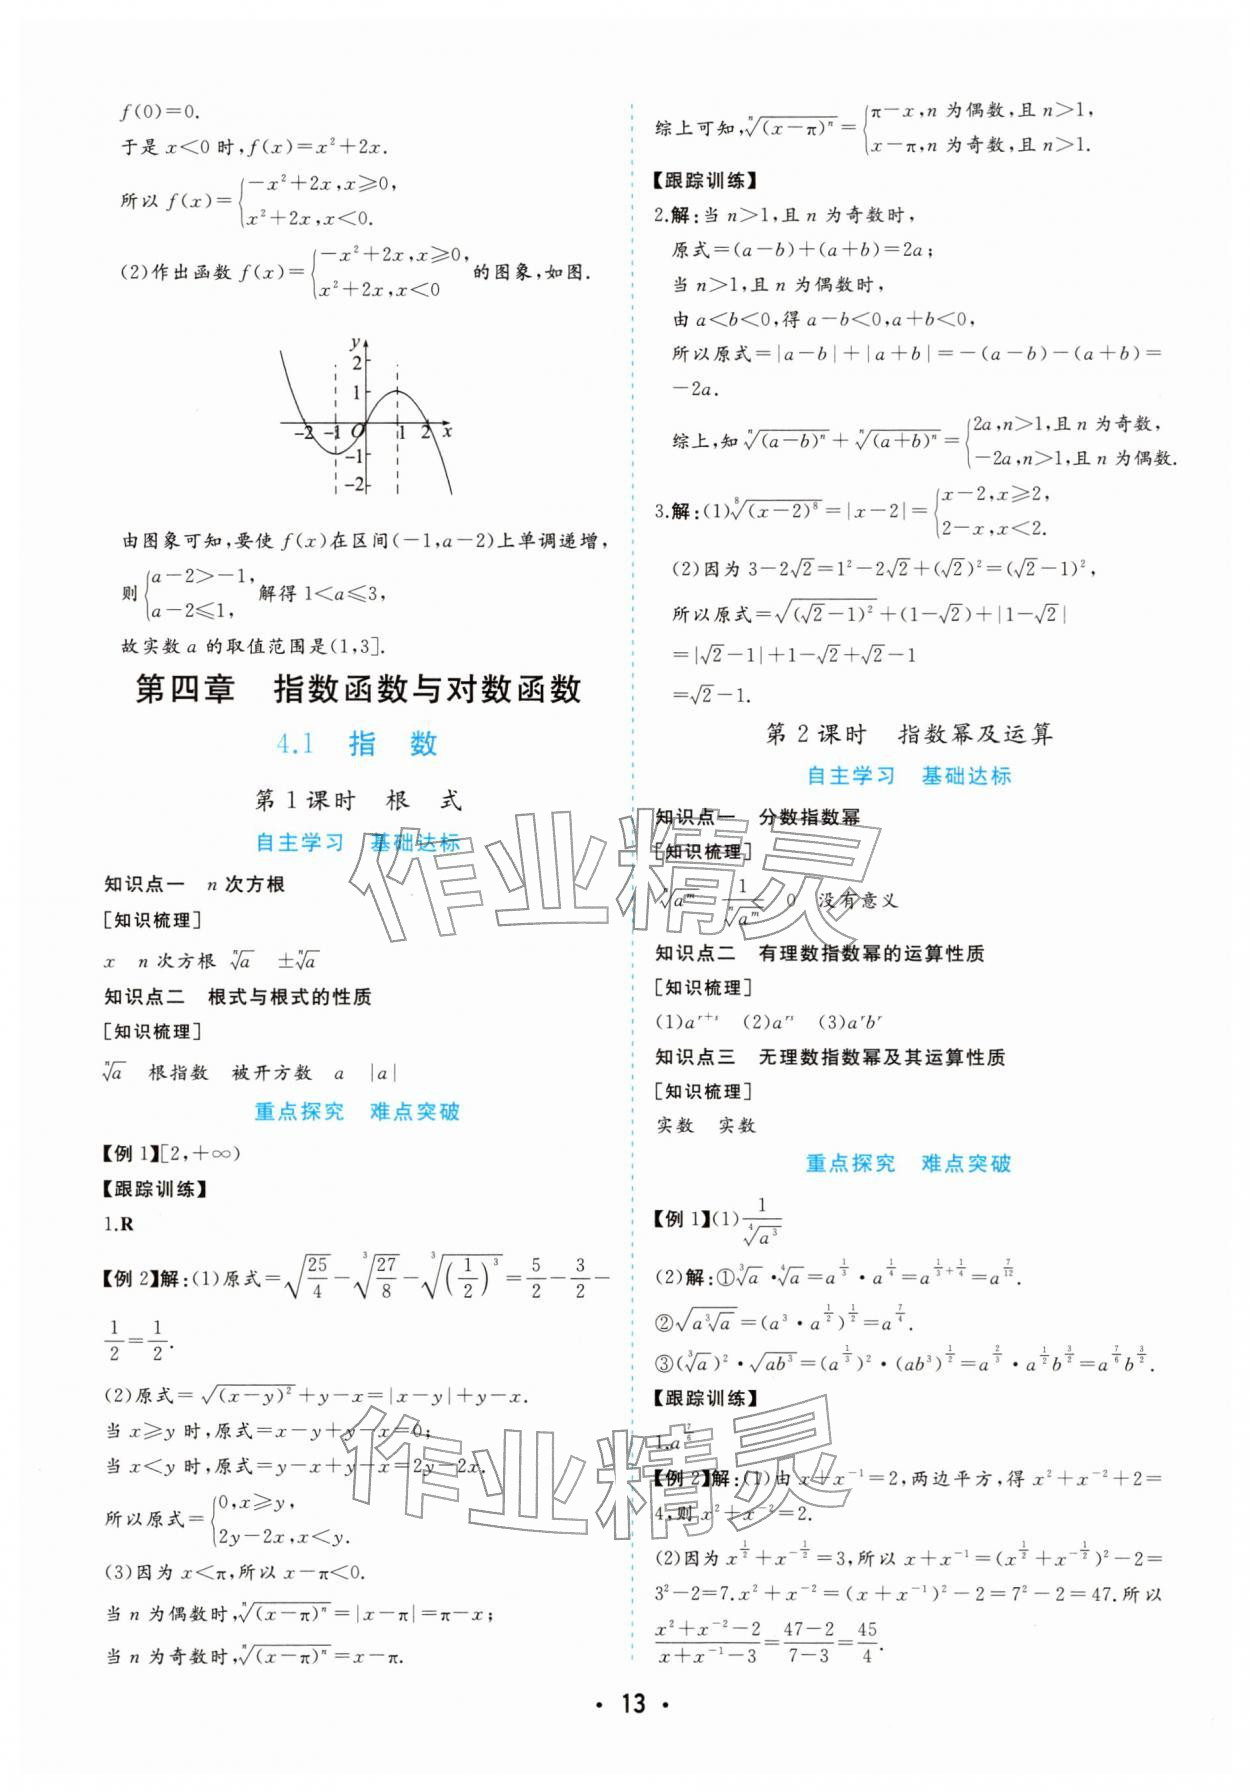 f(0)=0.
于是 x<0 时,f(x)=x²+2x.
所以 f(x)={−x²+2x,x≥0,
x²+2x,x<0.
(2)作出函数 f(x)={−x²+2x,x≥0,
x²+2x,x<0 的图象,如图.
y
2
1
−2 −1 O 1 2 x
−1
−2
由图象可知,要使 f(x)在区间(−1,a−2)上单调递增,
则{a−2>−1,
a−2≤1, 解得 1<a≤3,
故实数 a 的取值范围是(1,3].
第四章 指数函数与对数函数
4.1 指 数
第 1 课时 根 式
自主学习 基础达标
知识点一 n 次方根
[知识梳理]
x n 次方根 ⁿ√a ±ⁿ√a
知识点二 根式与根式的性质
[知识梳理]
ⁿ√a 根指数 被开方数 a |a|
重点探究 难点突破
【例 1】[2,+∞)
【跟踪训练】
1.R
【例 2】解:(1)原式=√(25/4)−³√(27/8)−³√((1/2)³)=5/2−3/2−
1/2=1/2.
(2)原式=√((x−y)²)+y−x=|x−y|+y−x.
当 x≥y 时,原式=x−y+y−x=0;
当 x<y 时,原式=y−x+y−x=2y−2x.
所以原式={0,x≥y,
2y−2x,x<y.
(3)因为 x<π,所以 x−π<0.
当 n 为偶数时,ⁿ√((x−π)ⁿ)=|x−π|=π−x;
当 n 为奇数时,ⁿ√((x−π)ⁿ)=x−π.
综上可知,ⁿ√((x−π)ⁿ)={π−x,n 为偶数,且 n>1,
x−π,n 为奇数,且 n>1.
【跟踪训练】
2.解:当 n>1,且 n 为奇数时,
原式=(a−b)+(a+b)=2a;
当 n>1,且 n 为偶数时,
由 a<b<0,得 a−b<0,a+b<0,
所以原式=|a−b|+|a+b|=−(a−b)−(a+b)=
−2a.
综上,知ⁿ√((a−b)ⁿ)+ⁿ√((a+b)ⁿ)={2a,n>1,且 n 为奇数,
−2a,n>1,且 n 为偶数.
3.解:(1)⁸√((x−2)⁸)=|x−2|={x−2,x≥2,
2−x,x<2.
(2)因为 3−2√2=1²−2√2+(√2)²=(√2−1)²,
所以原式=√((√2−1)²)+(1−√2)+|1−√2|
=|√2−1|+1−√2+√2−1
=√2−1.
第 2 课时 指数幂及运算
自主学习 基础达标
知识点一 分数指数幂
[知识梳理]
ⁿ√(a^m) 1/ⁿ√(a^m) 0 没有意义
知识点二 有理数指数幂的运算性质
[知识梳理]
(1)a^(r+s) (2)a^(rs) (3)a^r b^r
知识点三 无理数指数幂及其运算性质
[知识梳理]
实数 实数
重点探究 难点突破
【例 1】(1)1/⁴√(a³)
(2)解:①³√a·⁴√a=a^(1/3)·a^(1/4)=a^(1/3+1/4)=a^(7/12).
②√(a³√a)=(a³·a^(1/2))^(1/2)=a^(7/4).
③(³√a)²·√(ab³)=(a^(1/3))²·(ab³)^(1/2)=a^(2/3)·a^(1/2)b^(3/2)=a^(7/6)b^(3/2).
【跟踪训练】
1.a^(7/6)
【例 2】解:(1)由 x+x⁻¹=2,两边平方,得 x²+x⁻²+2=
4,则 x²+x⁻²=2.
(2)因为 x^(1/2)+x^(−1/2)=3,所以 x+x⁻¹=(x^(1/2)+x^(−1/2))²−2=
3²−2=7.x²+x⁻²=(x+x⁻¹)²−2=7²−2=47.所以
(x²+x⁻²−2)/(x+x⁻¹−3)=(47−2)/(7−3)=45/4.
作业精灵
作业精灵
· 13 ·